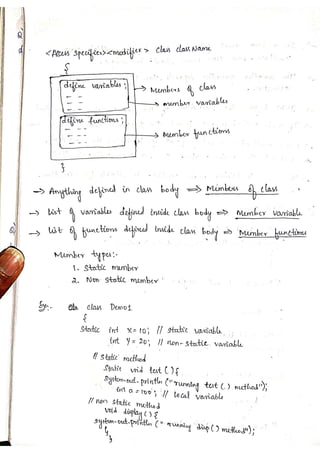 <Access specifier><modifier> class className
{
define variables ;
→ Members of class
→ member variables
define functions ;
→ Member functions
}
→ Anything defined in class body ⇒ Members of class
→ List of variables defined inside class body ⇒ Member variable
→ List of functions defined inside class body ⇒ Member functions
Member types:-
1. Static member
2. Non static member
Eg:- class Demo1
{
Static int x = 10; // static variable
int y = 20; // non-static variable
// static method
Static void test ( ) {
System.out.println ("running test ( ) method");
int a = 100 ; // local variable
// non static method
void display ( ) {
System.out.println ( " running disp( ) method");
}
}